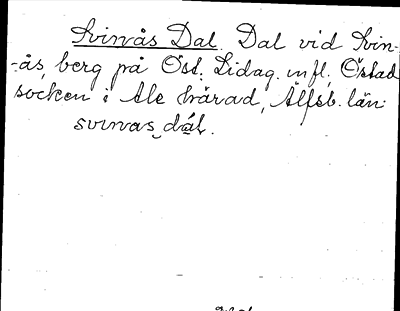 Svinås Dal. Dal vid Svin-
-ås berg på Öst. Sidag. m fl, Östad
socken i Ale härad, Älfsb. län.
svinas dál.